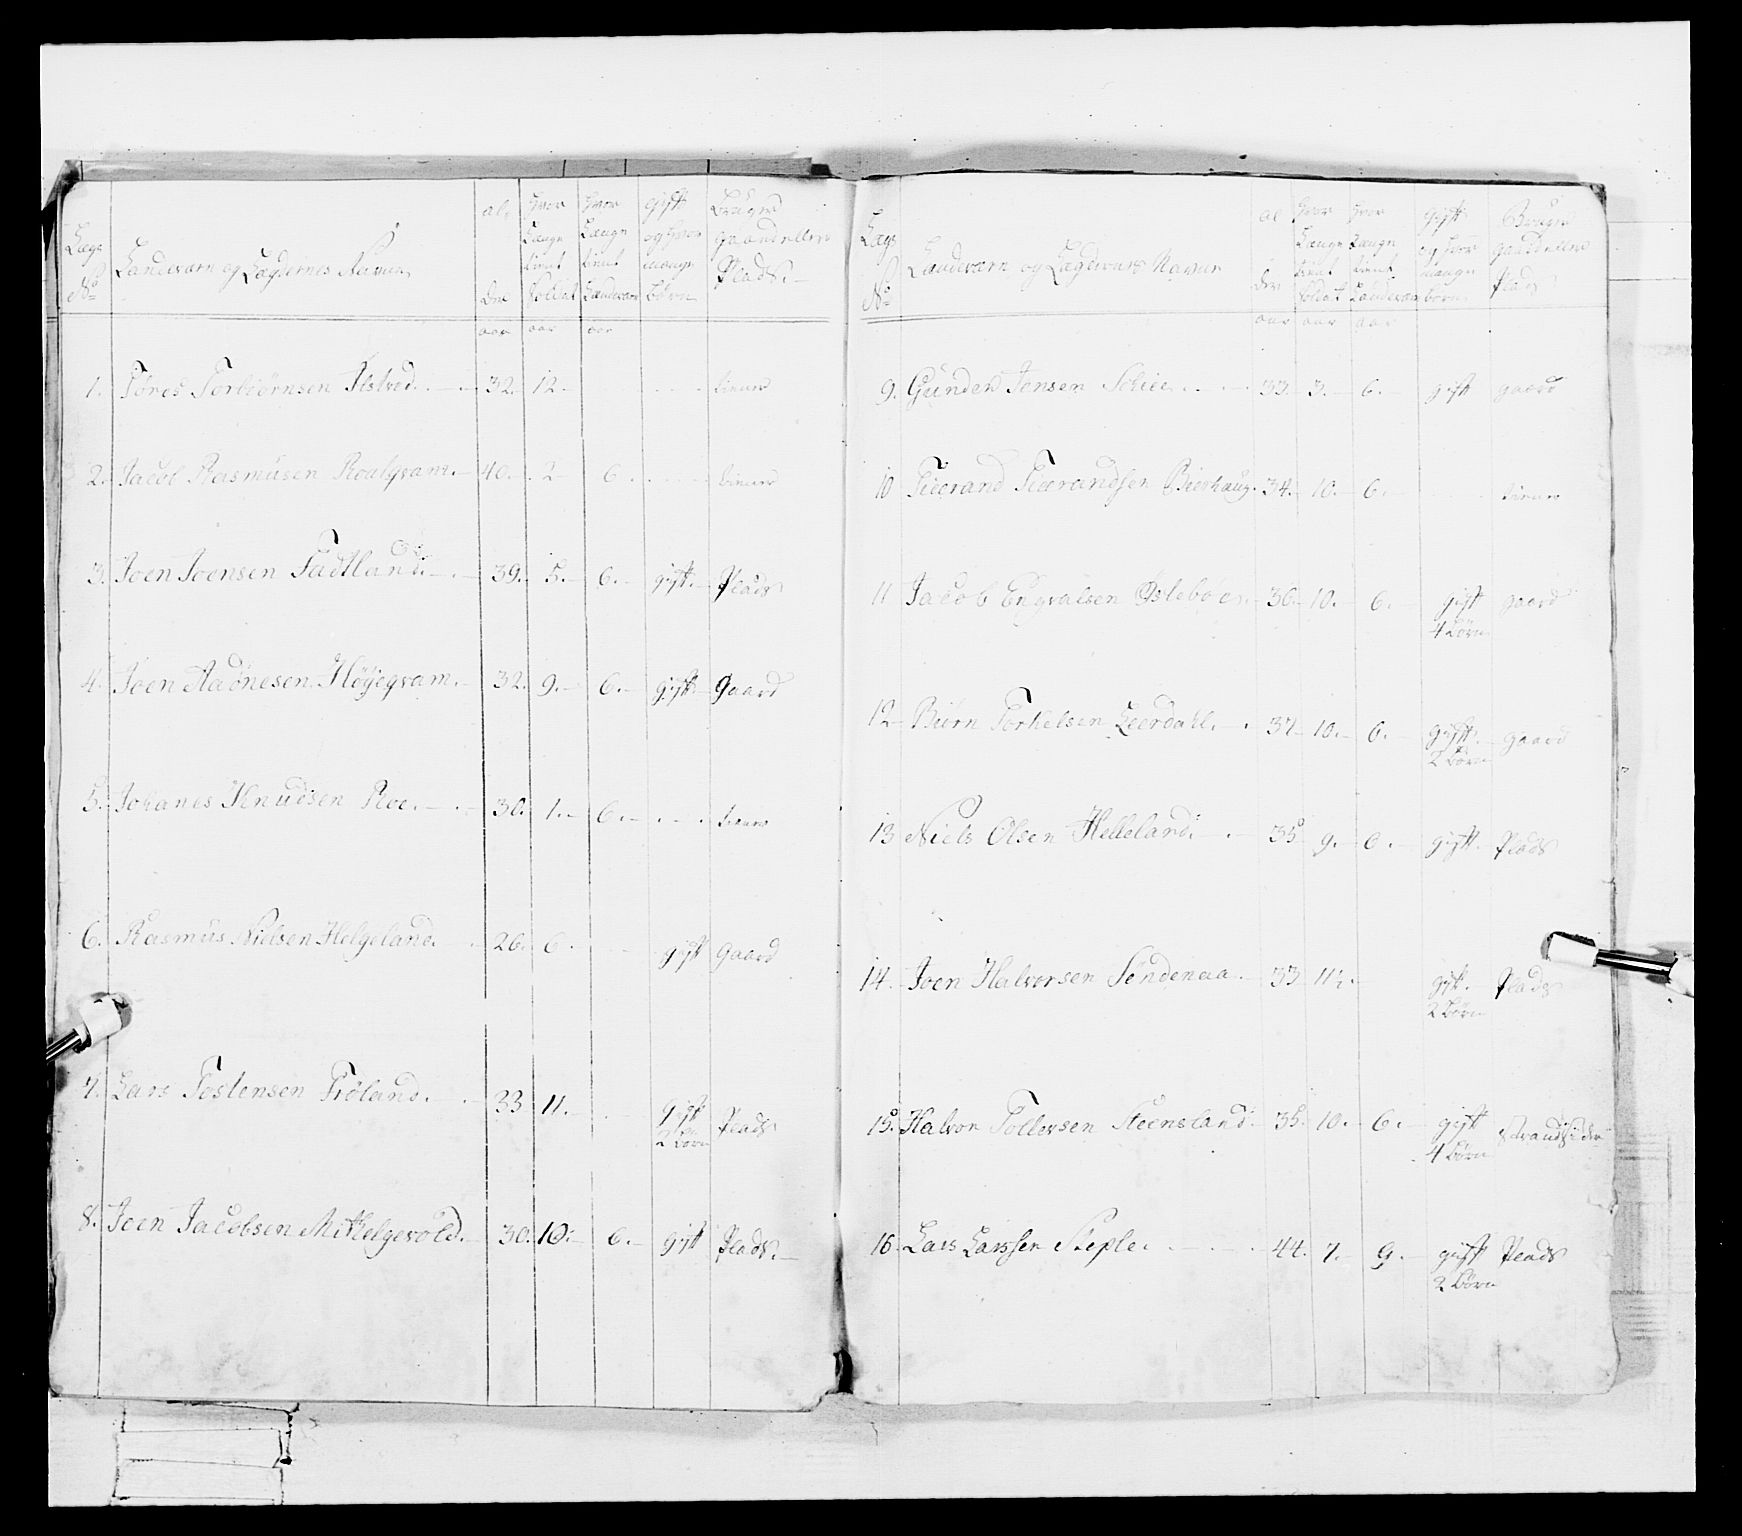 Lægs No
Landeværn og Lægdernes Navne
al- der
hvor Længe tient Soldat
hvor Længe tient Landeværn
gift og hvor mange børn
Bruger gaard eller Plads.
aar aar aar
1. Tores Torbiørnsen 32. 12. - - - tiener
2. Jacob Rasmusen 40. 2 6. - - - tiener
3. Joen Joensen Tadtland. 39. 5. 6. gift. Plads
4. Joen Aadnesen Høyegvam. 32. 9. 6. gift Gaard
5. Johanes Knudsen Roe. 30. 1. 6. - - - tiener
6. Rasmus Nielsen Helgeland. 26. 6. - - gift Gaard
7. Lars Tostensen Frøland. 33 11. - - gift Plads
2 børn
8. Joen Jacobsen 30. 10. 6. gift Plads.
Lægs No
Landeværn og Lægdernes Navne
al der
hvor Længe tient Soldat
hvor Længe tient Landeværn
gift og hvor mange børn
Bruger gaard eller Plads
aar aar aar
9. Gunder Jensen 33. 3. 6. gift gaard
10 Tierand Tierandsen Bierhaug. 34. 10. 6. - - tiener
11 Jacob Engvalsen 36. 10. 6. gift gaard
4 børn
12 Biørn Torkelsen Leerdahl. 37 10. 6. gift. gaard
2 børn
13 Niels Olsen Helleland. 35 9. 6. gift. Plads
14. Joen Halvorsen Søndenaa. 33 11½. gift. Plads
2 børn
15. Halvor Tollevsen Steensland. 35. 10. 6. gift Strandsider
4 børn
16 Lars Larssen Steple. 44. 7. 9. gift Plads
2 børn